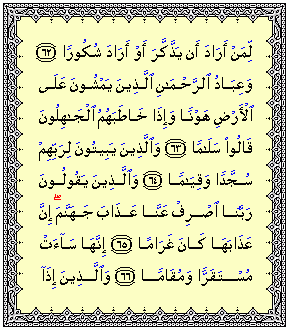 لِّمَنْ أَرَادَ أَن يَذَّكَّرَ أَوْ أَرَادَ شُكُورًا ﴿٦٢﴾
وَعِبَادُ ٱلرَّحْمَـٰنِ ٱلَّذِينَ يَمْشُونَ عَلَى
ٱلْأَرْضِ هَوْنًا وَإِذَا خَاطَبَهُمُ ٱلْجَـٰهِلُونَ
قَالُوا۟ سَلَـٰمًا ﴿٦٣﴾ وَٱلَّذِينَ يَبِيتُونَ لِرَبِّهِمْ
سُجَّدًا وَقِيَـٰمًا ﴿٦٤﴾ وَٱلَّذِينَ يَقُولُونَ
رَبَّنَا ٱصْرِفْ عَنَّا عَذَابَ جَهَنَّمَ ۖ إِنَّ
عَذَابَهَا كَانَ غَرَامًا ﴿٦٥﴾ إِنَّهَا سَآءَتْ
مُسْتَقَرًّا وَمُقَامًا ﴿٦٦﴾ وَٱلَّذِينَ إِذَآ